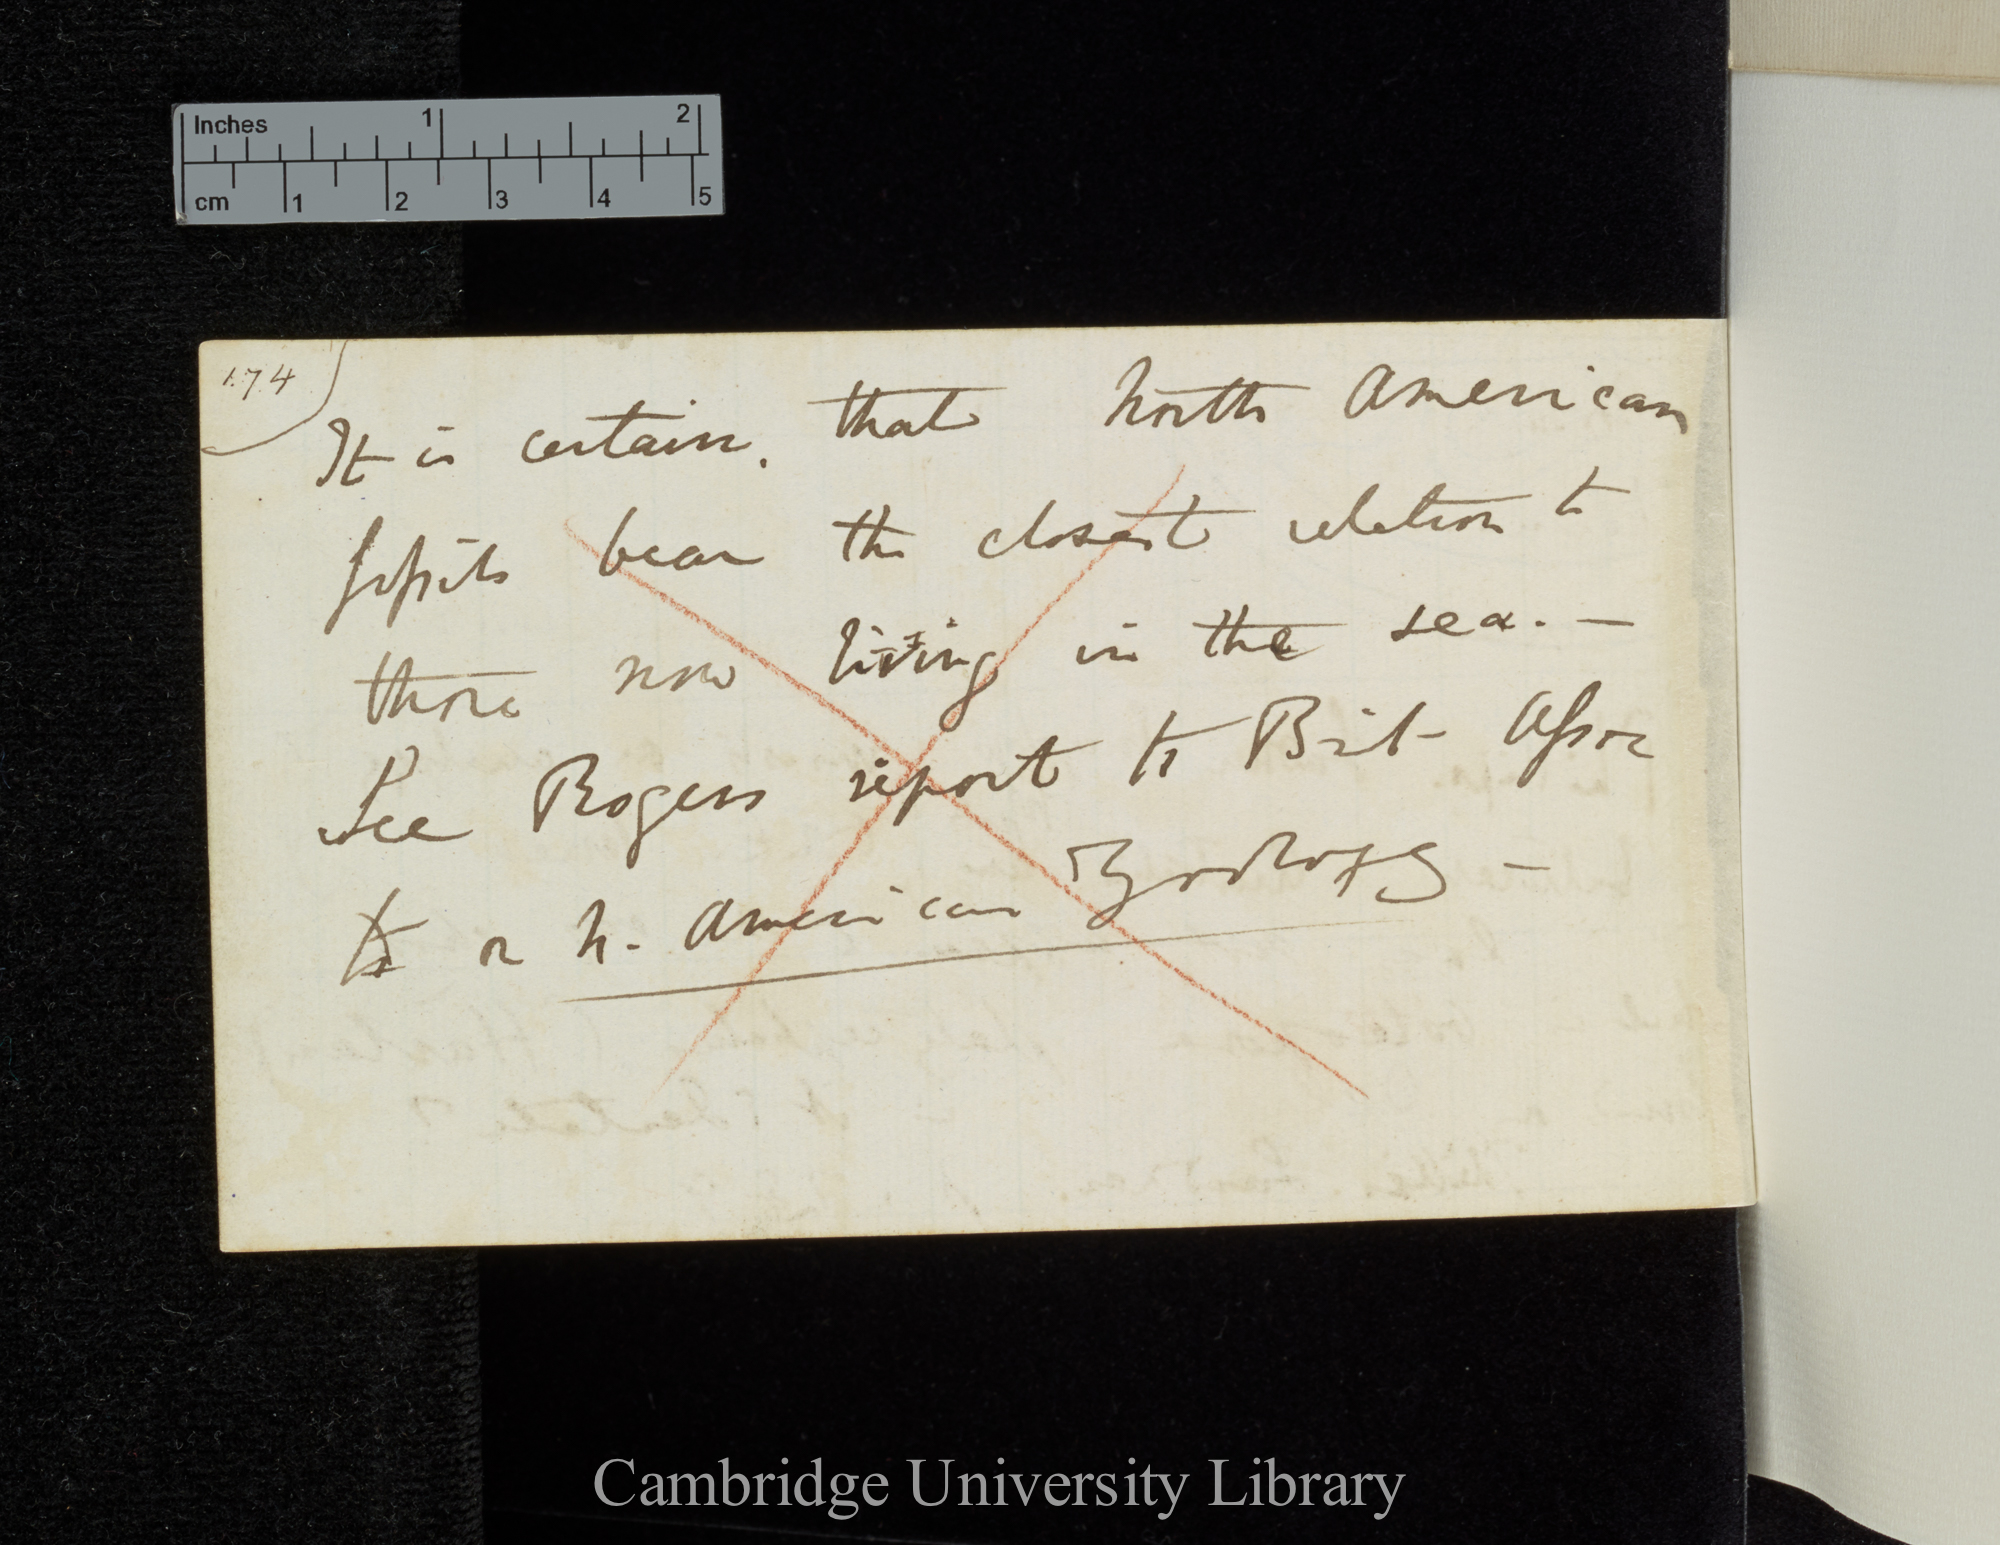 Inches 1 2
cm 1 2 3 4 5
174
It is certain. that North American
fossils bear the closest relation to
those now living in the sea. —
See Rogers report to Brit Assoc
to on N. American Zoology —
Cambridge University Library